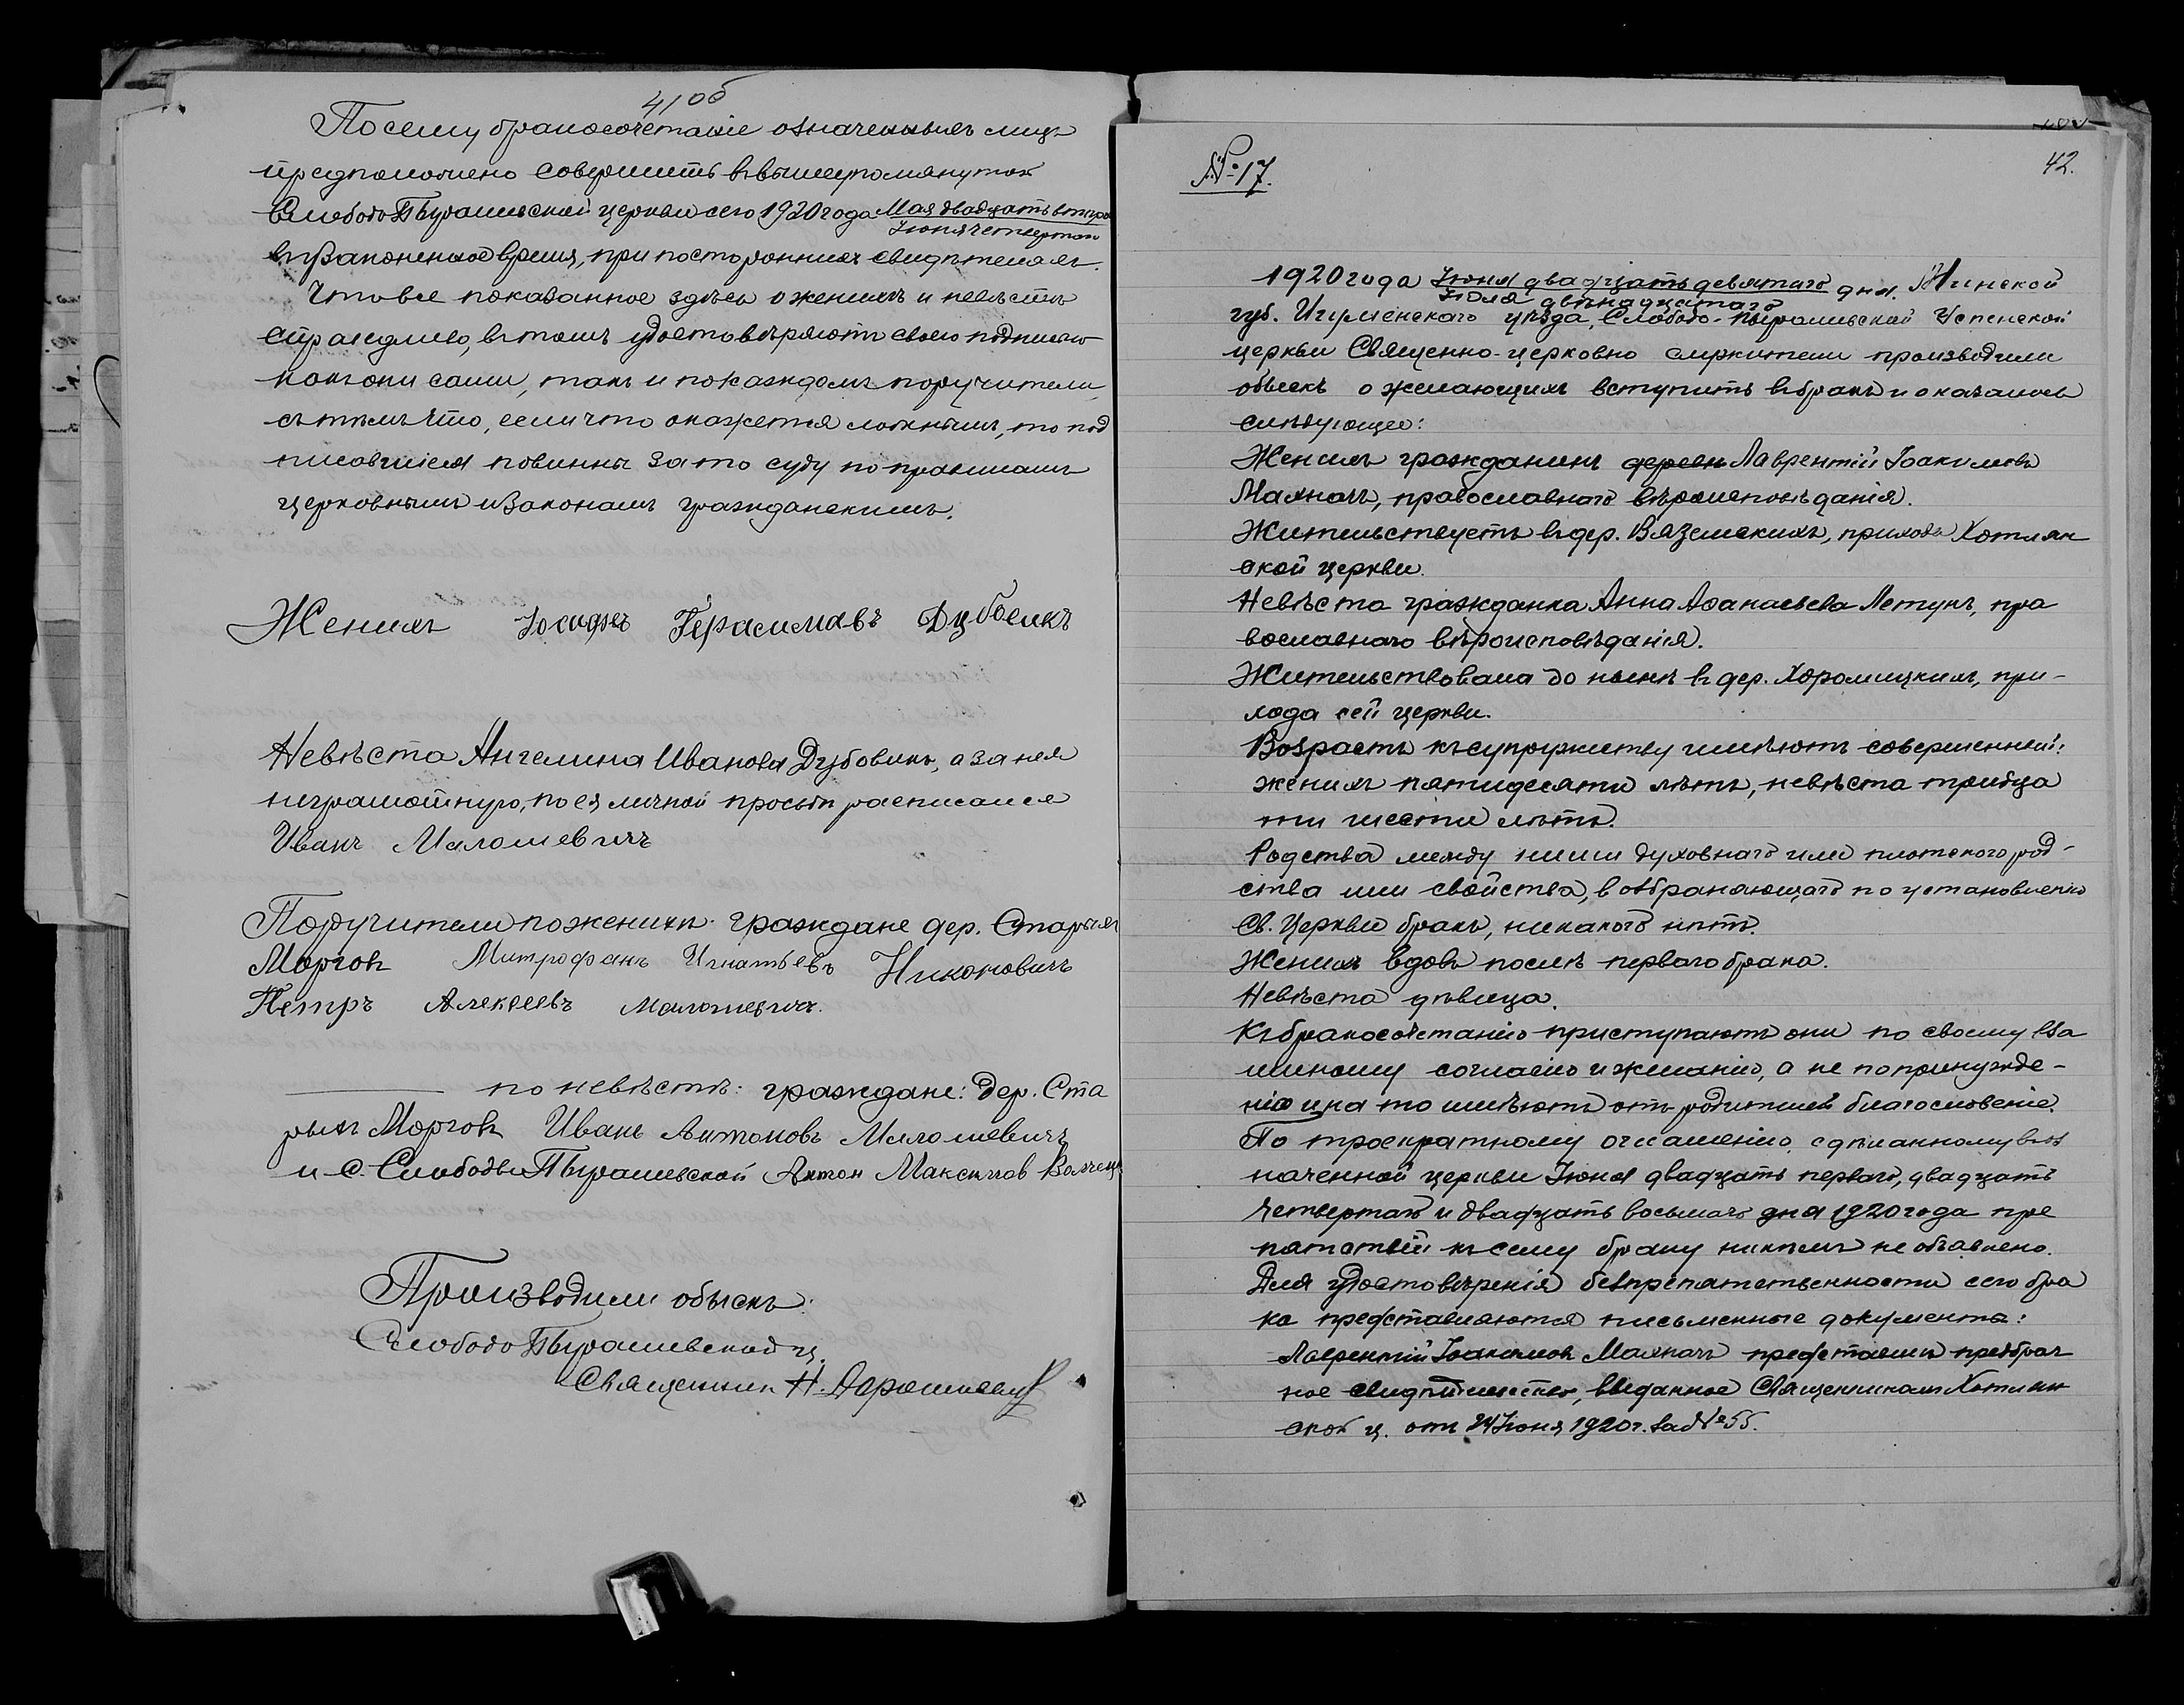 41 об
Посему бракосочетаніе означенныхъ лицъ
предположено совершить въ вышеупомянутой
Слободо Пырашевской церкви сего 1920 года Мая двадцать втораго
Іюня четвертаго
въ узаконенное время, при постороннихъ свидѣтеляхъ.
Что все показанное здѣсь о женихѣ и невѣстѣ
справедливо, въ томъ удостовѣряютъ своею подписью
какъ они сами, такъ и по каждомъ поручители,
съ тѣмъ что, если что окажется ложнымъ, то под
писавшіеся повинны за то суду по правиламъ
церковнымъ и Законамъ гражданскимъ.
Женихъ Іосифъ Герасимавъ Дубовикъ
Невѣста Ангелина Иванова Дубовикъ, а за нея
неграмотную, по ея личной просьбѣ расписался
Иванъ Малашевичъ
Поручители по женихѣ: граждане дер. Старыхъ
Моргов Митрофанъ Игнатьевъ Никоновичъ
Петръ Алексеевъ Малашевичъ.
по невѣстѣ: граждане: дер. Ста
рыхъ Моргов Иванъ Антоновъ Малашевичъ
и с. Слободы Пырашевской Антон Максимов
Производили обыскъ:
Слободо Пырашевской ц.
Священник Н.
№ 17.
42.
1920 года Іюня двадцать девятаго дня. Минской
Іюля двѣнадцатаго
губ. Игуменскаго уѣзда, Слободо-Пырашевской Успенской
церкви Священно-церковно служители производили
обыскъ о желающихъ вступить въ бракъ и оказалось
слѣдующее:
Женихъ гражданинъ дерев Лаврентій Іоакимовъ
Махначъ, православнаго вѣроисповѣданія.
Жительствуетъ въ дер. Вяземскихъ, прихода Хотлян
ской церкви.
Невѣста гражданка Анна Аѳанасьева Летунъ, пра
вославнаго вѣроисповѣданія.
Жительствовала до нынѣ въ дер. Хоромицкихъ, при-
хода сей церкви.
Возрастъ къ супружеству имѣютъ совершенный:
женихъ пятидесяти лѣтъ, невѣста тридца
ти шести лѣтъ.
Родства между ними духовнаго или плотского род-
ства или свойства, возбраняющаго по установленію
Св. Церкви бракъ, никакого нѣтъ.
Женихъ вдовъ послѣ перваго брака.
Невѣста дѣвица.
Къ бракосочетанію приступаютъ они по своему вза
имному согласію и желанію, а не по принужде-
нію и на то имѣютъ отъ родителей благословеніе.
По троекратному оглашенію, сдѣланному въ оз
наченной церкви Іюня двадцать перваго, двадцать
четвертаго и двадцать восьмаго дня 1920 года пре
пятствій къ сему браку никѣмъ не объявлено.
Для удостовѣренія безпрепятственности сего бра
ка представляются письменные документы:
Лаврентій Іоакимов Махначъ представилъ предбрач
ное свидѣтельство, выданное Священникомъ Хотлян
ской ц. отъ 24 Іюня 1920 г. за № 55.